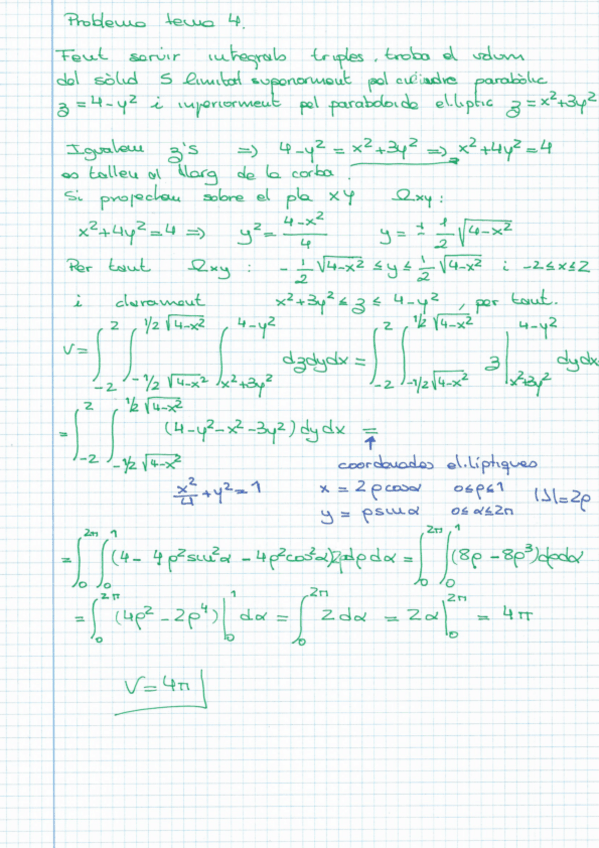 Problema tema 4.
Fent servir integrals triples, troba el volum
del sòlid S limitat superiorment pel cilindre parabòlic
z = 4-y² i inferiorment pel paraboloide el·líptic z = x²+3y²
Igualem z's ⇒ 4-y² = x²+3y² ⇒ x²+4y² = 4
es tallen al llarg de la corba.
Si projectem sobre el pla xy Ωxy:
x²+4y² = 4 ⇒ y² = (4-x²)/4 y = ± 1/2 √(4-x²)
Per tant Ωxy : -1/2 √(4-x²) ≤ y ≤ 1/2 √(4-x²) i -2≤x≤2
i clarament x²+3y² ≤ z ≤ 4-y², per tant.
V = ∫_{-2}^{2} ∫_{-1/2 √(4-x²)}^{1/2 √(4-x²)} ∫_{x²+3y²}^{4-y²} dzdydx = ∫_{-2}^{2} ∫_{-1/2 √(4-x²)}^{1/2 √(4-x²)} z |_{x²+3y²}^{4-y²} dydx
= ∫_{-2}^{2} ∫_{-1/2 √(4-x²)}^{1/2 √(4-x²)} (4-y²-x²-3y²) dydx =
↑
coordenades el·líptiques
x²/4 + y² = 1 x = 2ρcosα 0≤ρ≤1 |J| = 2ρ
y = ρsinα 0≤α≤2π
= ∫_0^{2π} ∫_0^1 (4 - 4ρ²sin²α - 4ρ²cos²α)2ρdρdα = ∫_0^{2π} ∫_0^1 (8ρ-8ρ³)dρdα
= ∫_0^{2π} (4ρ²-2ρ⁴)|_0^1 dα = ∫_0^{2π} 2dα = 2α|_0^{2π} = 4π
V = 4π